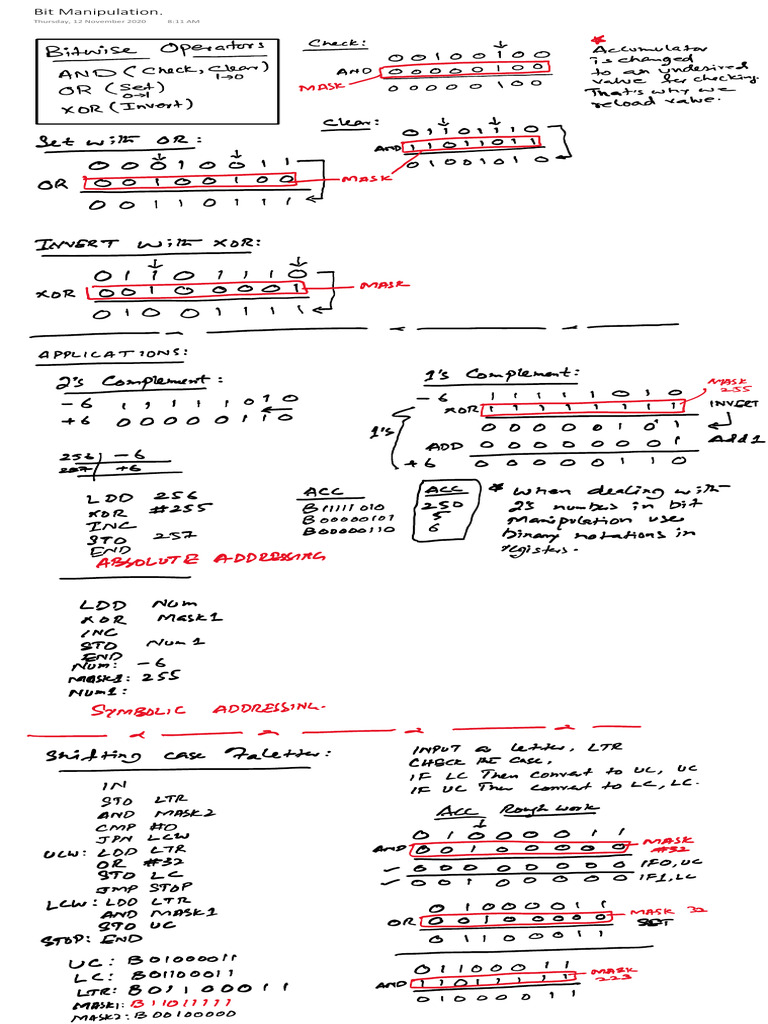 Bit Manipulation.
Thursday, 12 November 2020 8:11 AM
Bitwise Operators
AND (Check, Clear)
1→0
OR (Set)
0→1
XOR (Invert)
Check:
0 0 1 0 0 1 0 0
AND 0 0 0 0 0 1 0 0
MASK
0 0 0 0 0 1 0 0
* Accumulator
is changed
to an undesired
value for checking.
That's why we
reload value.
Clear:
0 1 1 0 1 1 1 0
AND 1 1 0 1 1 0 1 1
0 1 0 0 1 0 1 0
Set with OR:
0 0 0 1 0 0 1 1
OR 0 0 1 0 0 1 0 0 MASK
0 0 1 1 0 1 1 1
INVERT with XOR:
0 1 1 0 1 1 1 0
XOR 0 0 1 0 0 0 0 1 MASK
0 1 0 0 1 1 1 1
APPLICATIONS:
2's Complement:
-6 1 1 1 1 1 0 1 0
+6 0 0 0 0 0 1 1 0
256 -6
257 +6
1's Complement:
-6 1 1 1 1 1 0 1 0
MASK 255
XOR 1 1 1 1 1 1 1 1
INVERT
1's
0 0 0 0 0 1 0 1
ADD 0 0 0 0 0 0 0 1 Add 1
+6 0 0 0 0 0 1 1 0
LDD 256
XOR #255
INC
STO 257
END
ACC
B11111010
B00000101
B00000110
ACC
250
5
6
* When dealing with
2s number in bit
manipulation use
binary notations in
registers.
ABSOLUTE ADDRESSING
LDD Num
XOR Mask1
INC
STO Num1
END
Num: -6
MASK1: 255
Num1:
SYMBOLIC ADDRESSING.
Shifting case
INPUT a letter, LTR
CHECK its case,
IF LC Then convert to UC, UC
IF UC Then convert to LC, LC.
IN
STO LTR
AND MASK2
CMP #0
JPN LCW
UCW: LDD LTR
OR #32
STO LC
JMP STOP
LCW: LDD LTR
AND MASK1
STO UC
STOP: END
UC: B01000011
LC: B01100011
LTR: B01100011
MASK1: B11011111
MASK2: B00100000
Acc Rough work
0 1 0 0 0 0 1 1
AND 0 0 1 0 0 0 0 0 MASK #32
0 0 0 0 0 0 0 0 IF0, UC
0 0 1 0 0 0 0 0 IF1, LC
0 1 0 0 0 0 1 1
OR 0 0 1 0 0 0 0 0 MASK 32
SET
0 1 1 0 0 0 1 1
0 1 1 0 0 0 1 1
AND 1 1 0 1 1 1 1 1 MASK 223
0 1 0 0 0 0 1 1